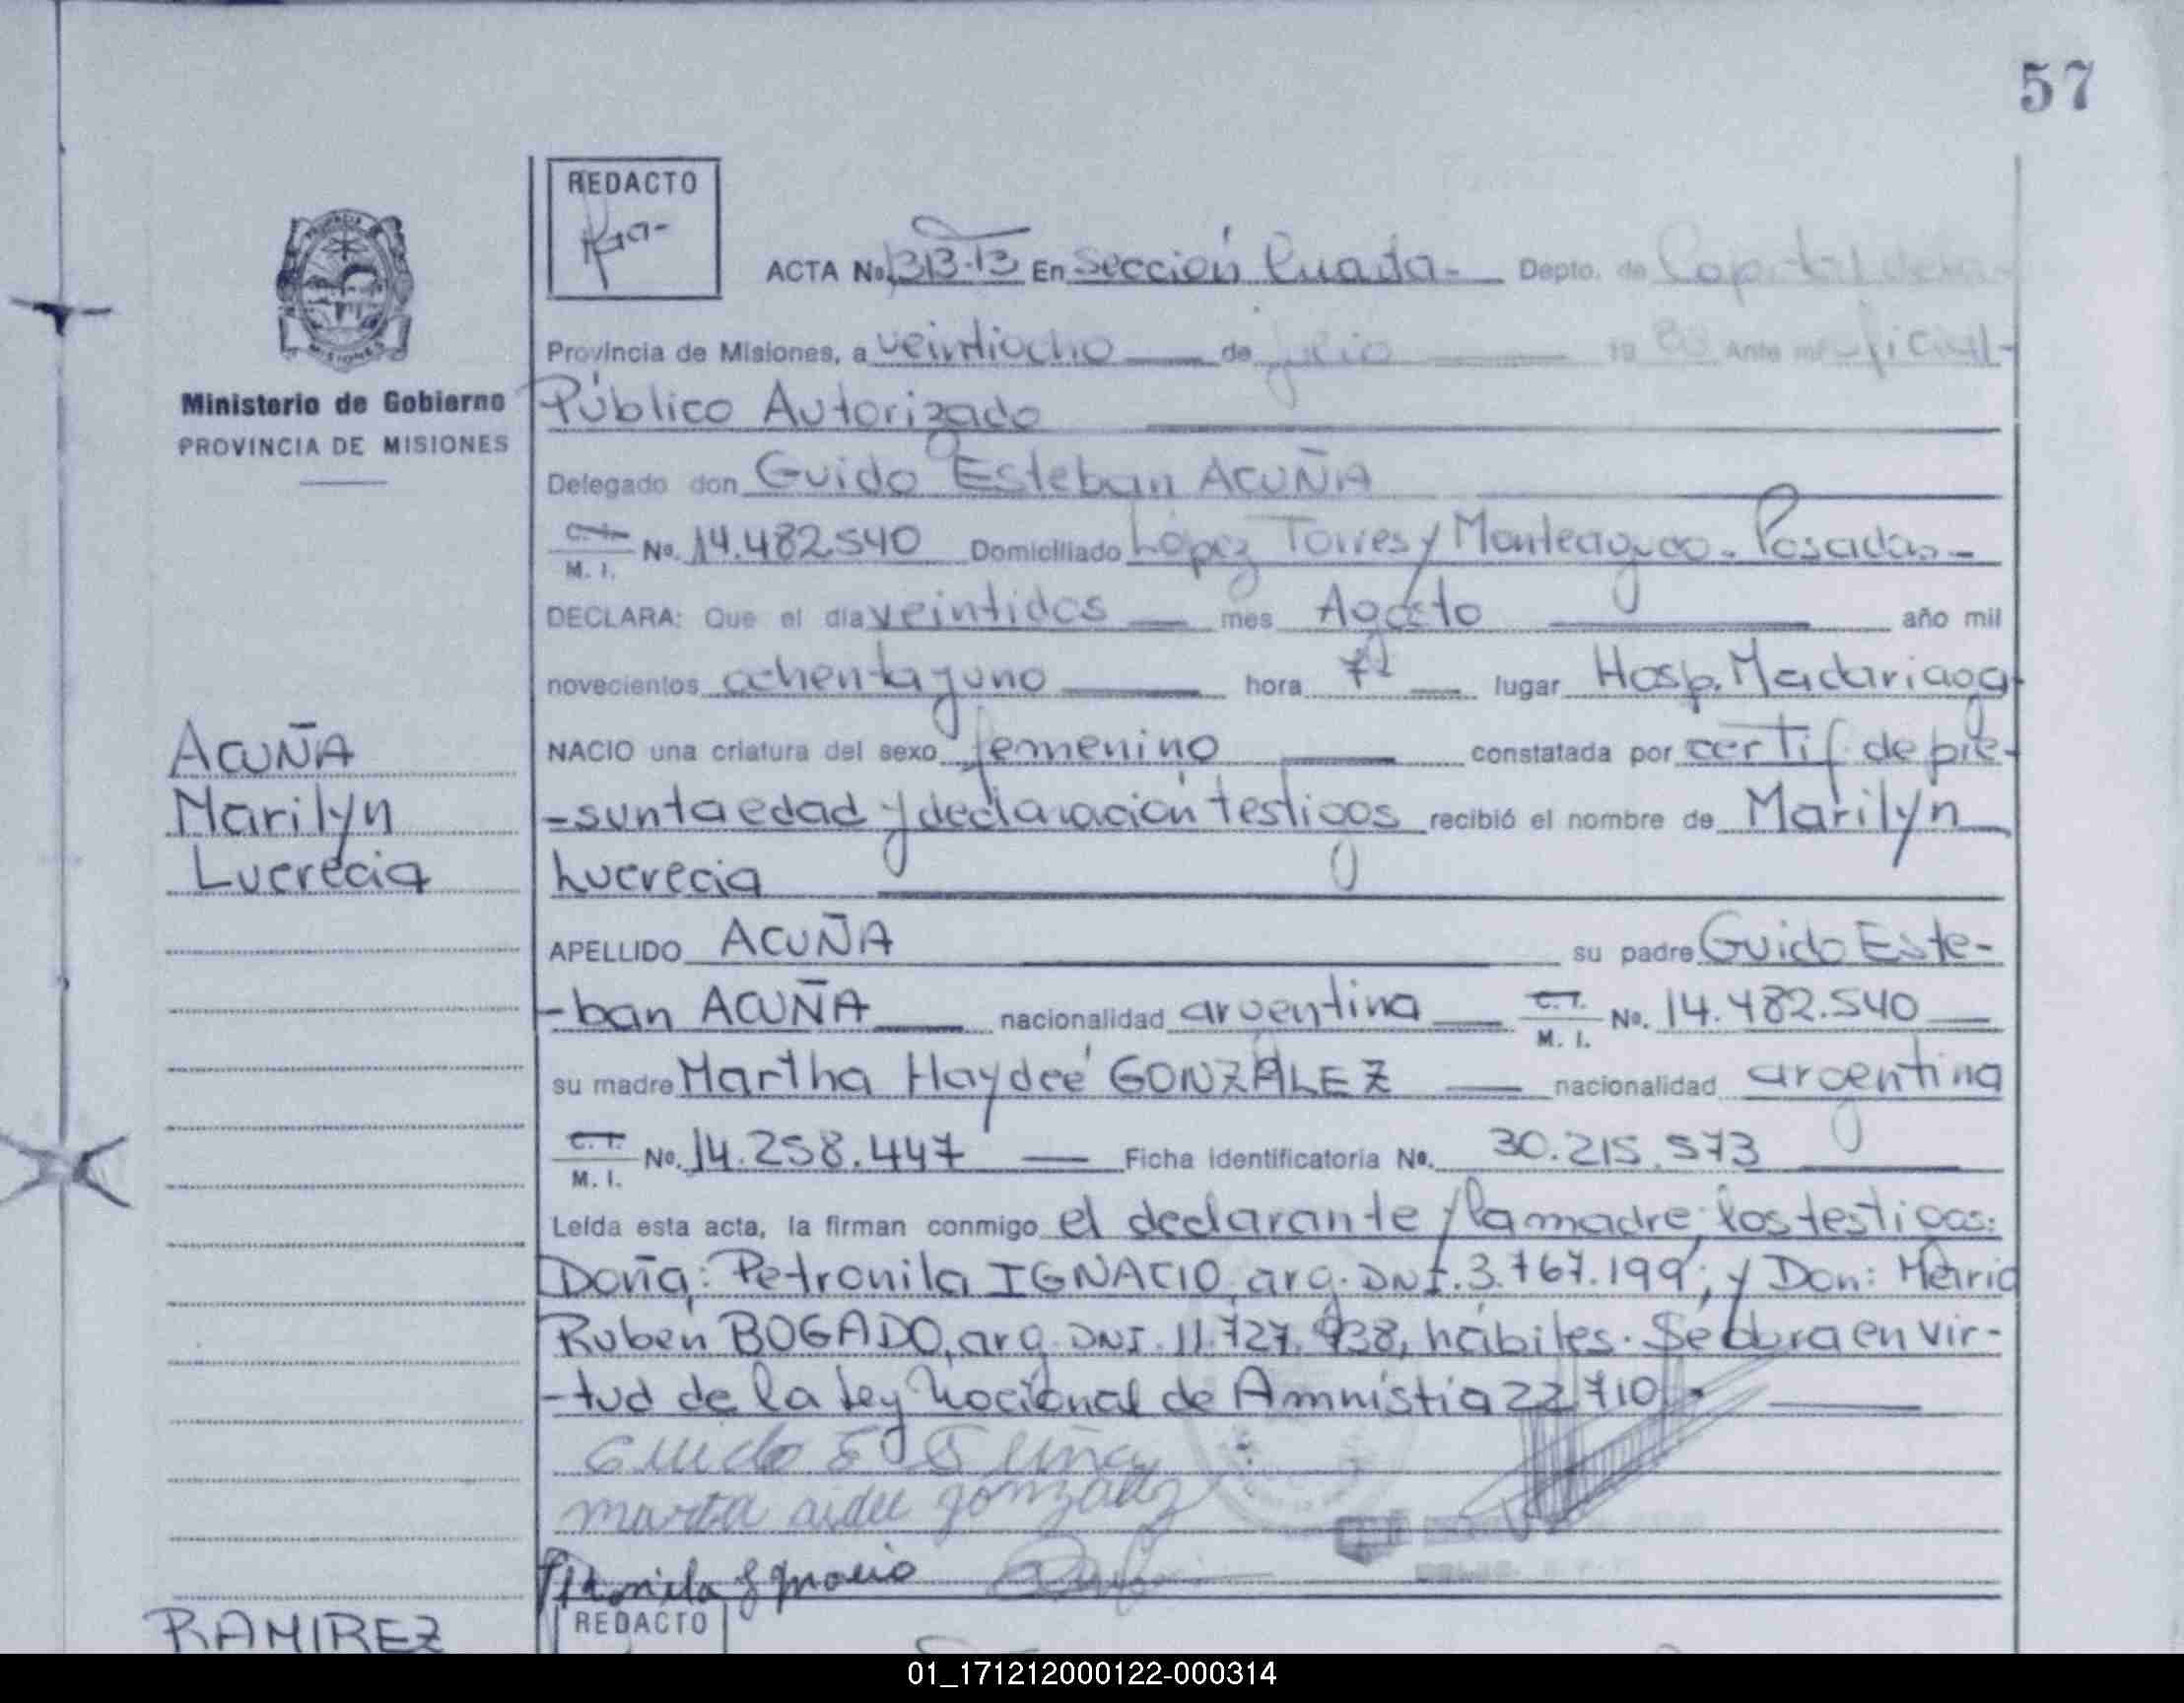 57
REDACTO
ACTA No. 1313-13 En Sección Cuarta- Depto. de Capital
Provincia de Misiones, a veintiocho de julio 19 Ante mi oficial-
Ministerio de Gobierno
PROVINCIA DE MISIONES
Público Autorizado
Delegado don Guido Esteban ACUÑA
C. I. M. I. No. 14.482.540 Domiciliado López Torres y Monteagudo- Posadas-
DECLARA: Que el dia veintidos mes Agosto año mil
novecientos ochenta y uno hora lugar Hosp. Madariaga
NACIO una criatura del sexo femenino constatada por certif. de pre-
-sunta edad y declaración testigos recibió el nombre de Marilyn
Lucrecia
ACUÑA
Marilyn
Lucrecia
APELLIDO ACUÑA su padre Guido Este-
-ban ACUÑA nacionalidad argentina C. I. M. I. No. 14.482.540
su madre Martha Haydeé GONZÁLEZ nacionalidad argentina
C. I. M. I. No. 14.258.447 Ficha identificatoria No. 30.215.573
Leída esta acta, la firman conmigo el declarante y la madre; los testigos:
Doña: Petronila IGNACIO, arg. DNI. 3.767.199; y Don: Mario
Ruben BOGADO, arg. DNI. 11.727.938, hábiles. Se obra en vir-
-tud de la Ley Nacional de Amnistia 22710.-
Guido E
marta aidee gonzalez
Petronila Ignacio
RAMIREZ
REDACTO
01_171212000122-000314